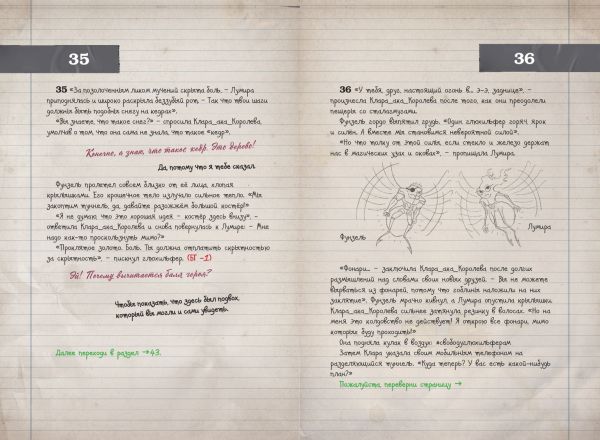 35
35 «За позолоченным ликом мучений скрыта боль, – Лумира
приподнялась и широко раскрыла беззубый рот. – Так что твои шаги
должны быть подобны снегу на кедрах».
«Вы знаете, что такое снег?» – спросила Клара_aka_Королева,
умолчав о том, что она сама не знала, что такое «кедр».
Конечно, я знаю, что такое кедр. Это дерево!
Да, потому что я тебе сказал.
Фунзель пролетел совсем близко от её лица, хлопая
крылышками. Его крошечное тело излучало сильное тепло. «Мы
закоптим туннель, да, давайте разожжём большой костёр!»
«Я не думаю что это хорошая идея – костёр здесь внизу», –
ответила Клара_aka_Королева и снова повернулась к Лумире: – Мне
надо как-то проскользнуть мимо?»
«Проклятое золото. Боль. Ты должна отплатить скрытностью
за скрытность», – пискнул глюхильфер. (БГ –1)
Эй! Почему вычитается балл героя?
Чтобы показать, что здесь был подвох,
который вы могли и сами увидеть.
Далее переходи в раздел →43.
36
36 «У тебя, друг, настоящий огонь в... э-э, заднице», –
произнесла Клара_aka_Королева после того, как они преодолели
пещеру со сталагмитами.
Фунзель гордо выпятил грудь. «Один глюхильфер горяч, ярок
и силён. А вместе мы становимся невероятной силой».
«Но что толку от этой силы, если стекло и железо держат
нас в магических узах и оковах», – пропищала Лумира.
Фунзель
Лумира
«Фонари... – заключила Клара_aka_Королева после долгих
размышлений над словами своих новых друзей. – Вы не можете
вырваться из фонарей, потому что гоблины наложили на них
заклятие». Фунзель мрачно кивнул, а Лумира опустила крылышки.
Клара_aka_Королева сильнее затянула резинку в волосах. «Но на
меня это колдовство не действует! Я открою все фонари, мимо
которых буду проходить!»
Она подняла кулак в воздух: «#свободуглюхильферам»
Затем Клара указала своим мобильным телефоном на
разделяющийся туннель. «Куда теперь? У вас есть какой-нибудь
план?»
Пожалуйста, переверни страницу →